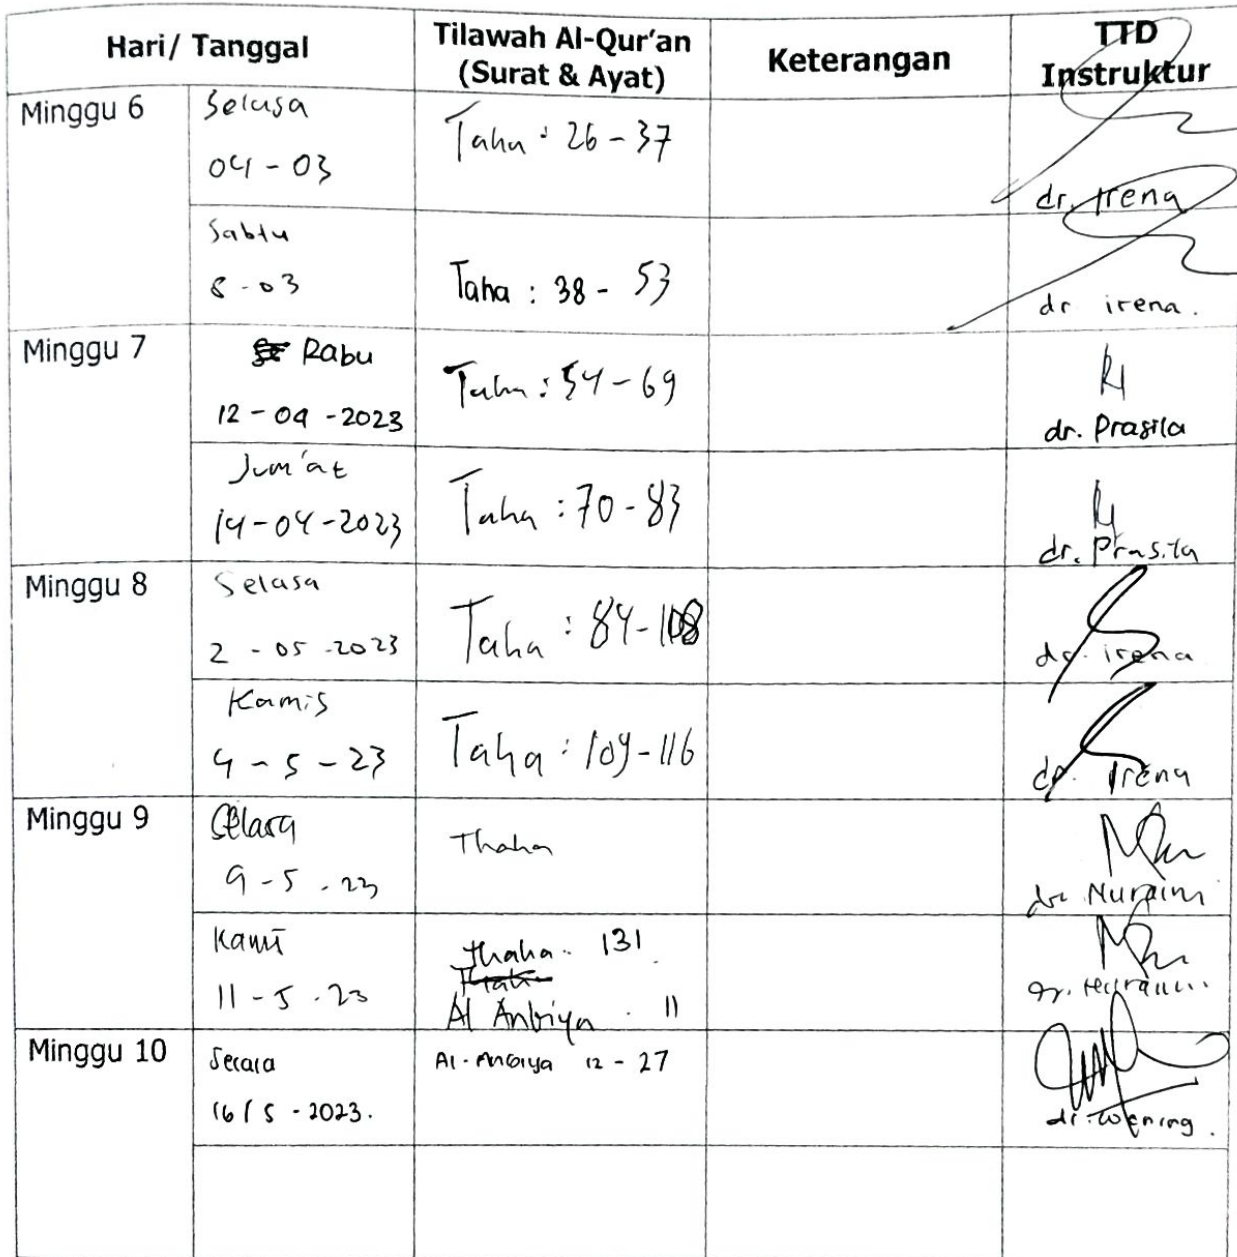 Hari/ Tanggal
Tilawah Al-Qur'an
(Surat & Ayat)
Keterangan
TTD
Instruktur
Minggu 6
Selasa
04 - 03
Taha : 26 - 37
dr. Irena
Sabtu
8 - 03
Taha : 38 - 53
dr irena.
Minggu 7
Rabu
12 - 04 - 2023
Taha : 54 - 69
dr. Prasila
Jum'at
14-04-2023
Taha : 70 - 83
dr. Prasila
Minggu 8
Selasa
2 - 05 - 2023
Taha : 84-108
dr. irena
Kamis
4 - 5 - 23
Taha : 109-116
dr. Irena
Minggu 9
Selasa
9 - 5 - 23
Thaha
dr. Nuraini
Kamis
11 - 5 - 23
Thaha 131
Al Anbiya 11
dr. Nuraini
Minggu 10
Selasa
16 / 5 - 2023.
Al-Anbiya 12 - 27
dr. Wening.